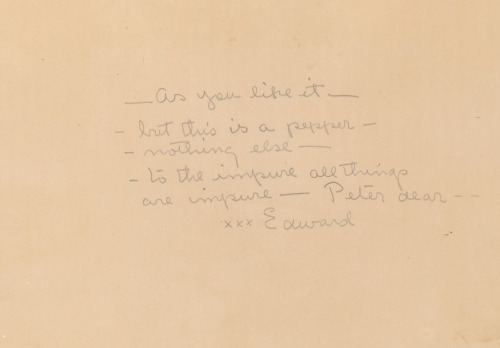 — As you like it —
- but this is a pepper -
- nothing else —
- to the impure all things
are impure — Peter dear - -
xxx Edward